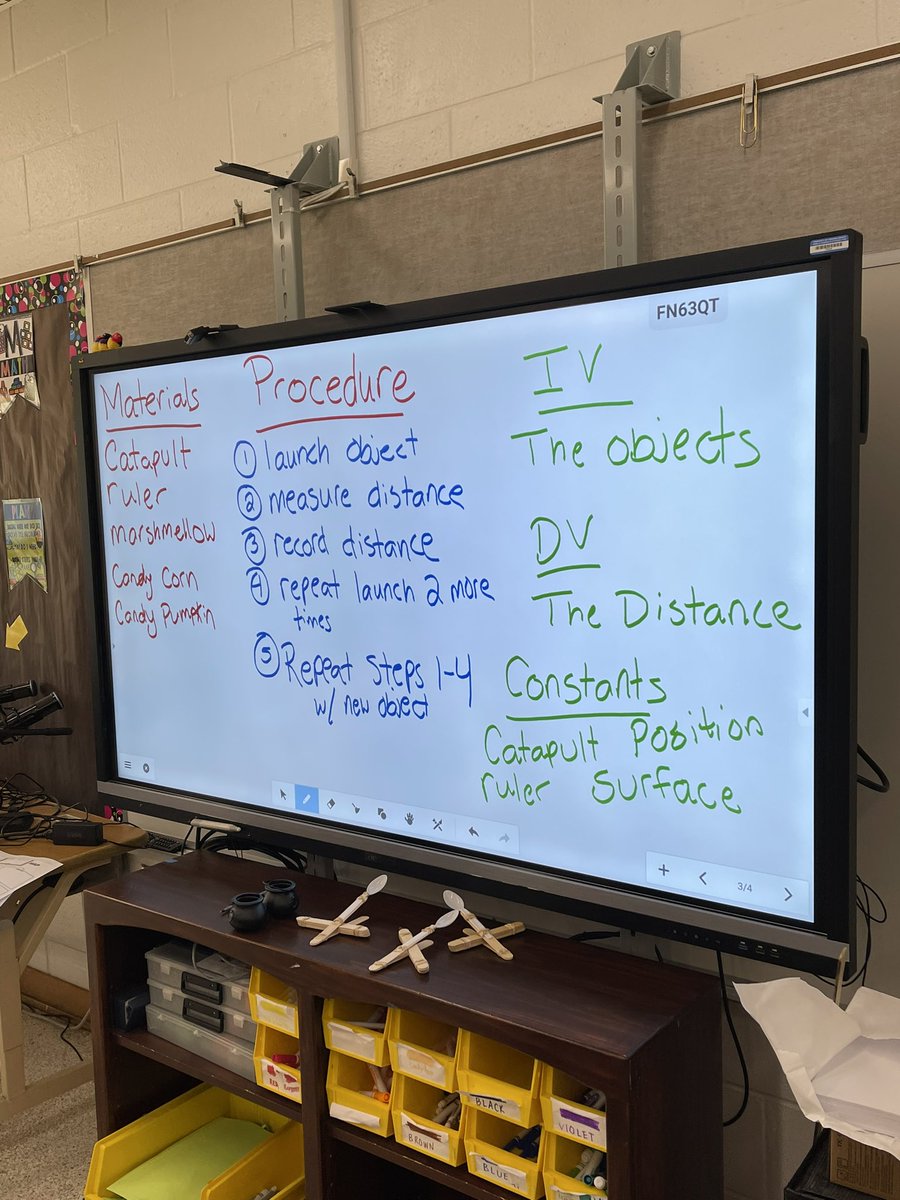 FN63QT
Materials
Catapult
ruler
marshmellow
Candy Corn
Candy Pumpkin
Procedure
① launch object
② measure distance
③ record distance
④ repeat launch 2 more
times
⑤ Repeat Steps 1-4
w/ new object
IV
The objects
DV
The Distance
Constants
Catapult Position
ruler Surface
3/4
BROWN
BLACK
BLUE
VIOLET